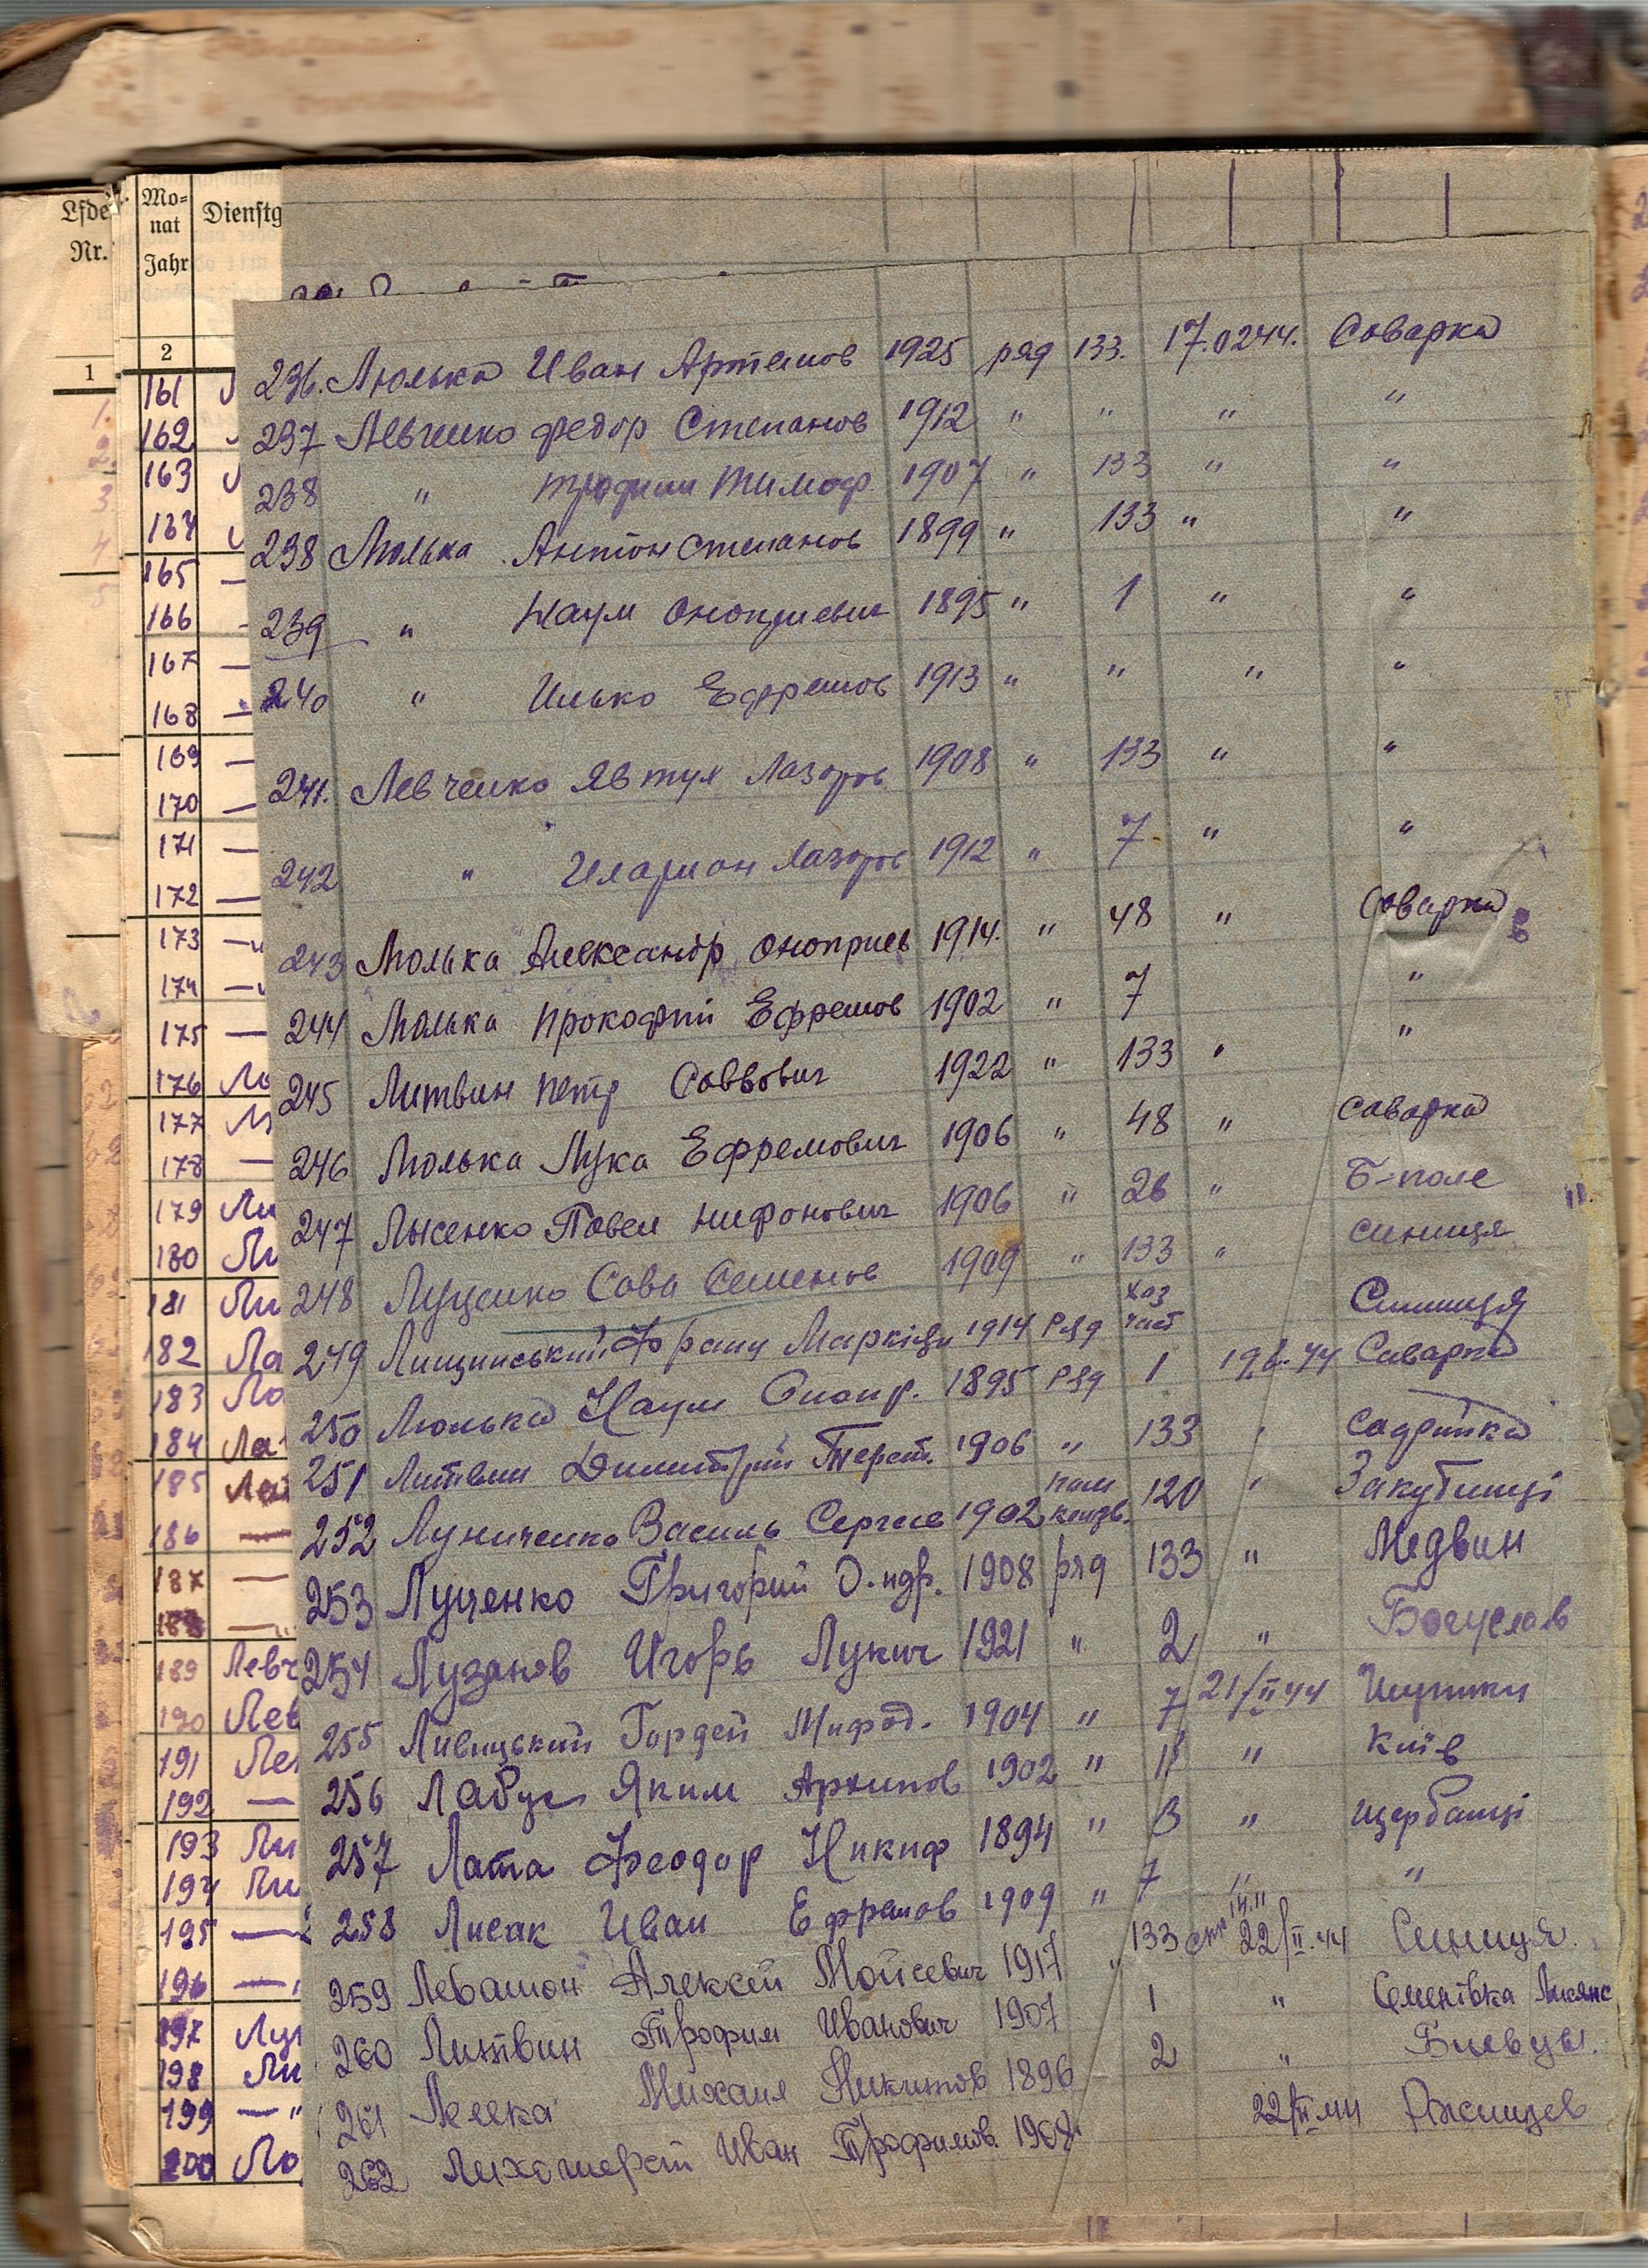 Lfde
Nr.
1
Mo-
nat
Jahr
Dienstg
2
161
162
163
164
165
166
167
168
169
170
171
172
173
174
175
176 Ло
177
178
179 Ли
180 Ли
181 Ли
182 Ла
183 Ло
184 Ла
185 Ле
186
187
188
189 Левч
190 Лев
191 Ле
192
193 Ли
194 Ли
195
196
197 Лу
198 Ли
199 — "
200 Ло
236. Люлька Иван Артемов 1925 ряд 133. 17.0244. Саварка
237 Левченко Федор Степанов 1912 " " " "
238 " Трофим Тимоф. 1907 " 133 " "
238 Люлька Антон Степанов 1899 " 133 " "
239 " Наум Оноприевич 1895 " 1 " "
240 " Илько Ефремов 1913 " " " "
241. Левченко Явтух Лазоров 1908 " 133 " "
242 " Иларион Лазоров 1912 " 7 " "
243 Люлька Александр Оноприев 1914. " 48 " Саварка
244 Люлька Прокофий Ефремов 1902 " 7 "
245 Литвин Петр Саввович 1922 " 133 " "
246 Люлька Лука Ефремович 1906 " 48 " Саварка
247 Лысенко Павел Нифонович 1906 " 26 " Б-поле
248 Луценко Сава Семенов 1909 " 133 " Синиця
249 Лищинський Франц 1914 ряд хоз част Синиця
250 Люлька Наум Оноп. 1895 ряд 1 Саварка
251 Литвин Димитрий Терет. 1906 " 133 "
252 Луниченко Василь Сергее 1902 120 " Закутинці
253 Луценко Григорий 1908 ряд 133 " Медвин
254 Лузанов Игорь Лукич 1921 " 2 " Богуслав
255 Ливицький Гордей Мифод. 1904 " 7 21/II 44
256 Лабус Яким Архипов 1902 " " Київ
257 Лата Феодор Никиф 1894 " " Щербашці
258 Лисак Иван Ефремов 1909 " 7 " "
259 Алексей Мойсевич 1917 " 133 14.II 22/II.44 Синиця.
260 Литвин Трофим Иванович 1907 1 " Семенівка Лисянс
261 Лелека Михаил Никитов 1896 2 " Биевцы.
262 Иван Трофимов. 1908 22/II 44 Ржищев